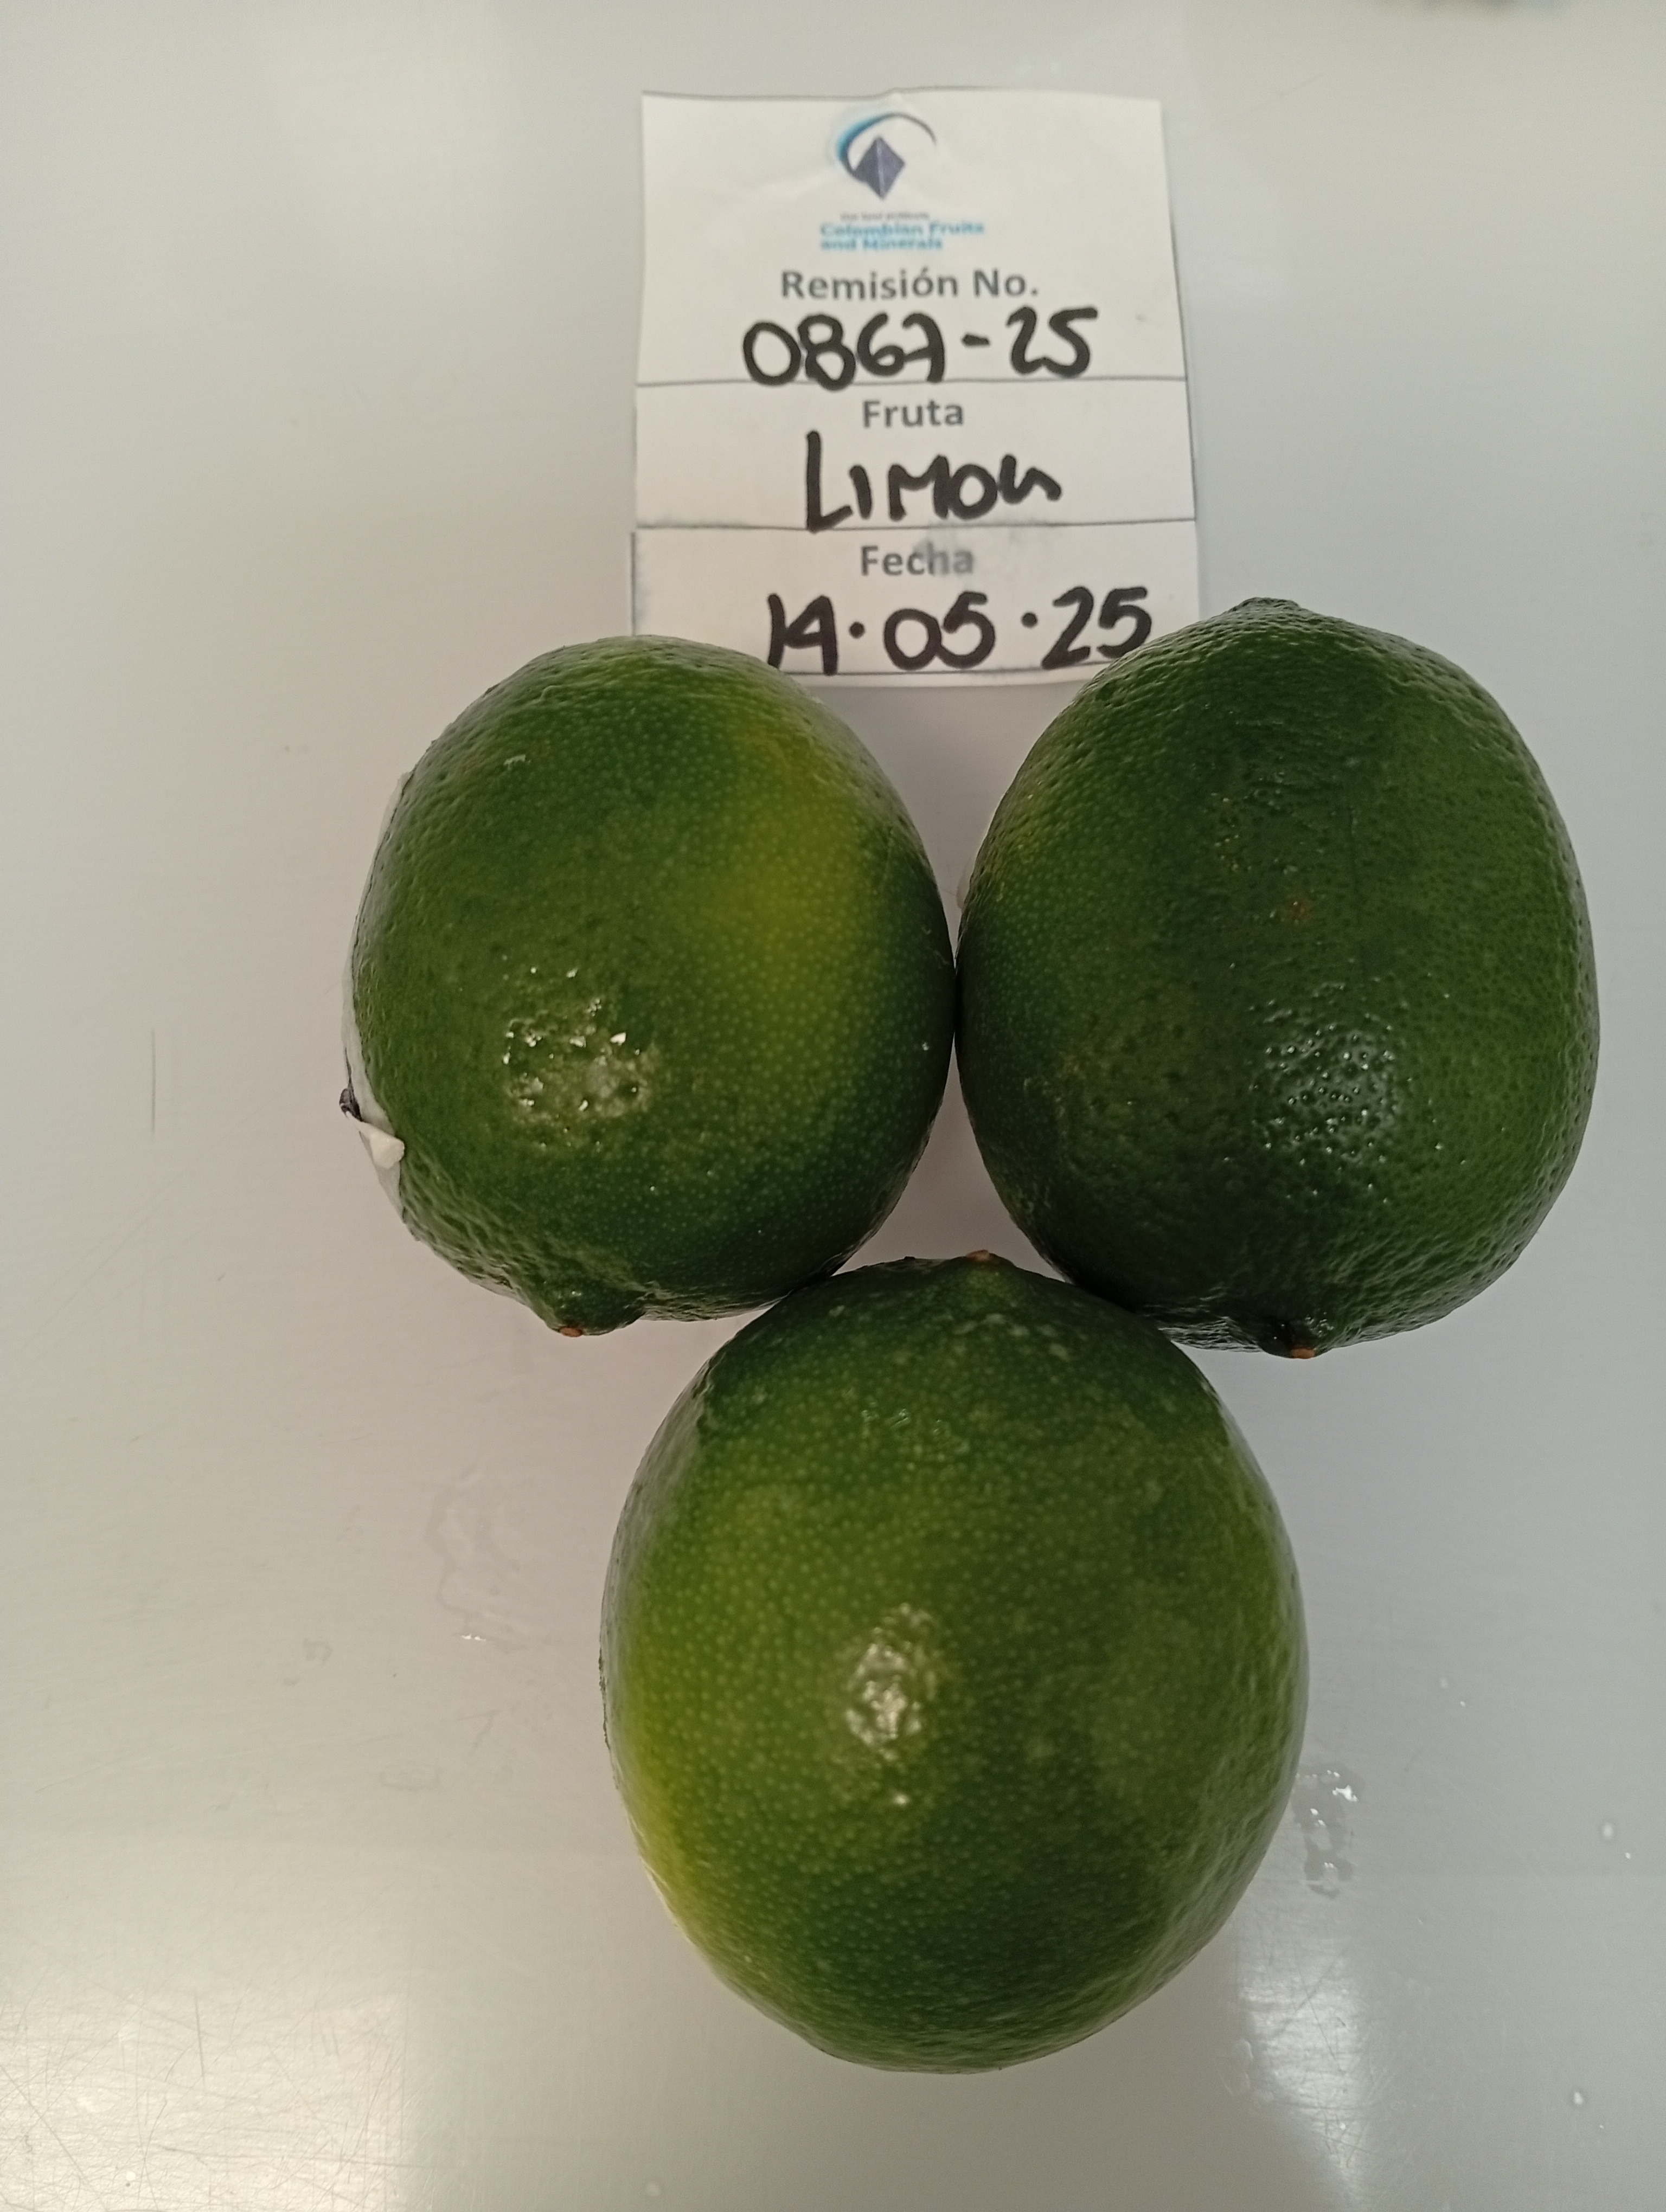 Colombian Fruits
and Minerals
Remisión No.
0867-25
Fruta
Limon
Fecha
14.05.25